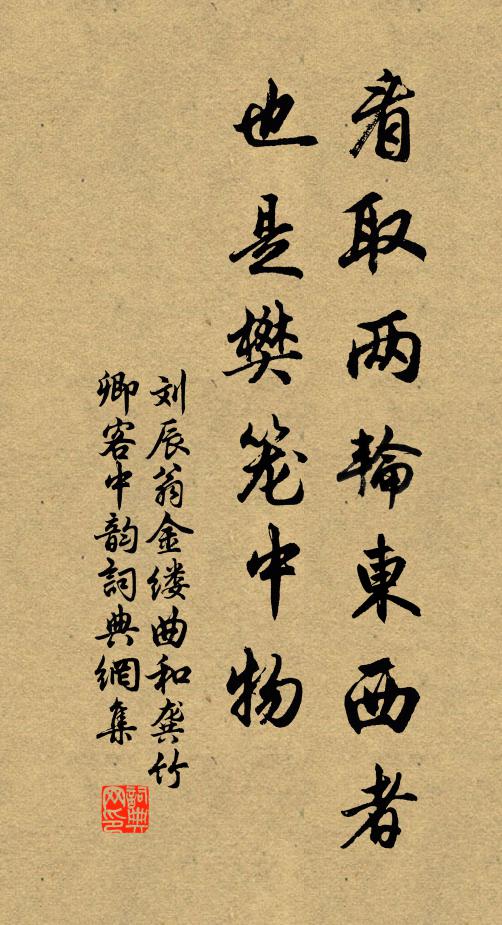 看取两輪東西者
也是樊笼中物
刘辰翁金缕曲和龚竹
卿客中韵詞典網集
詞典
网印